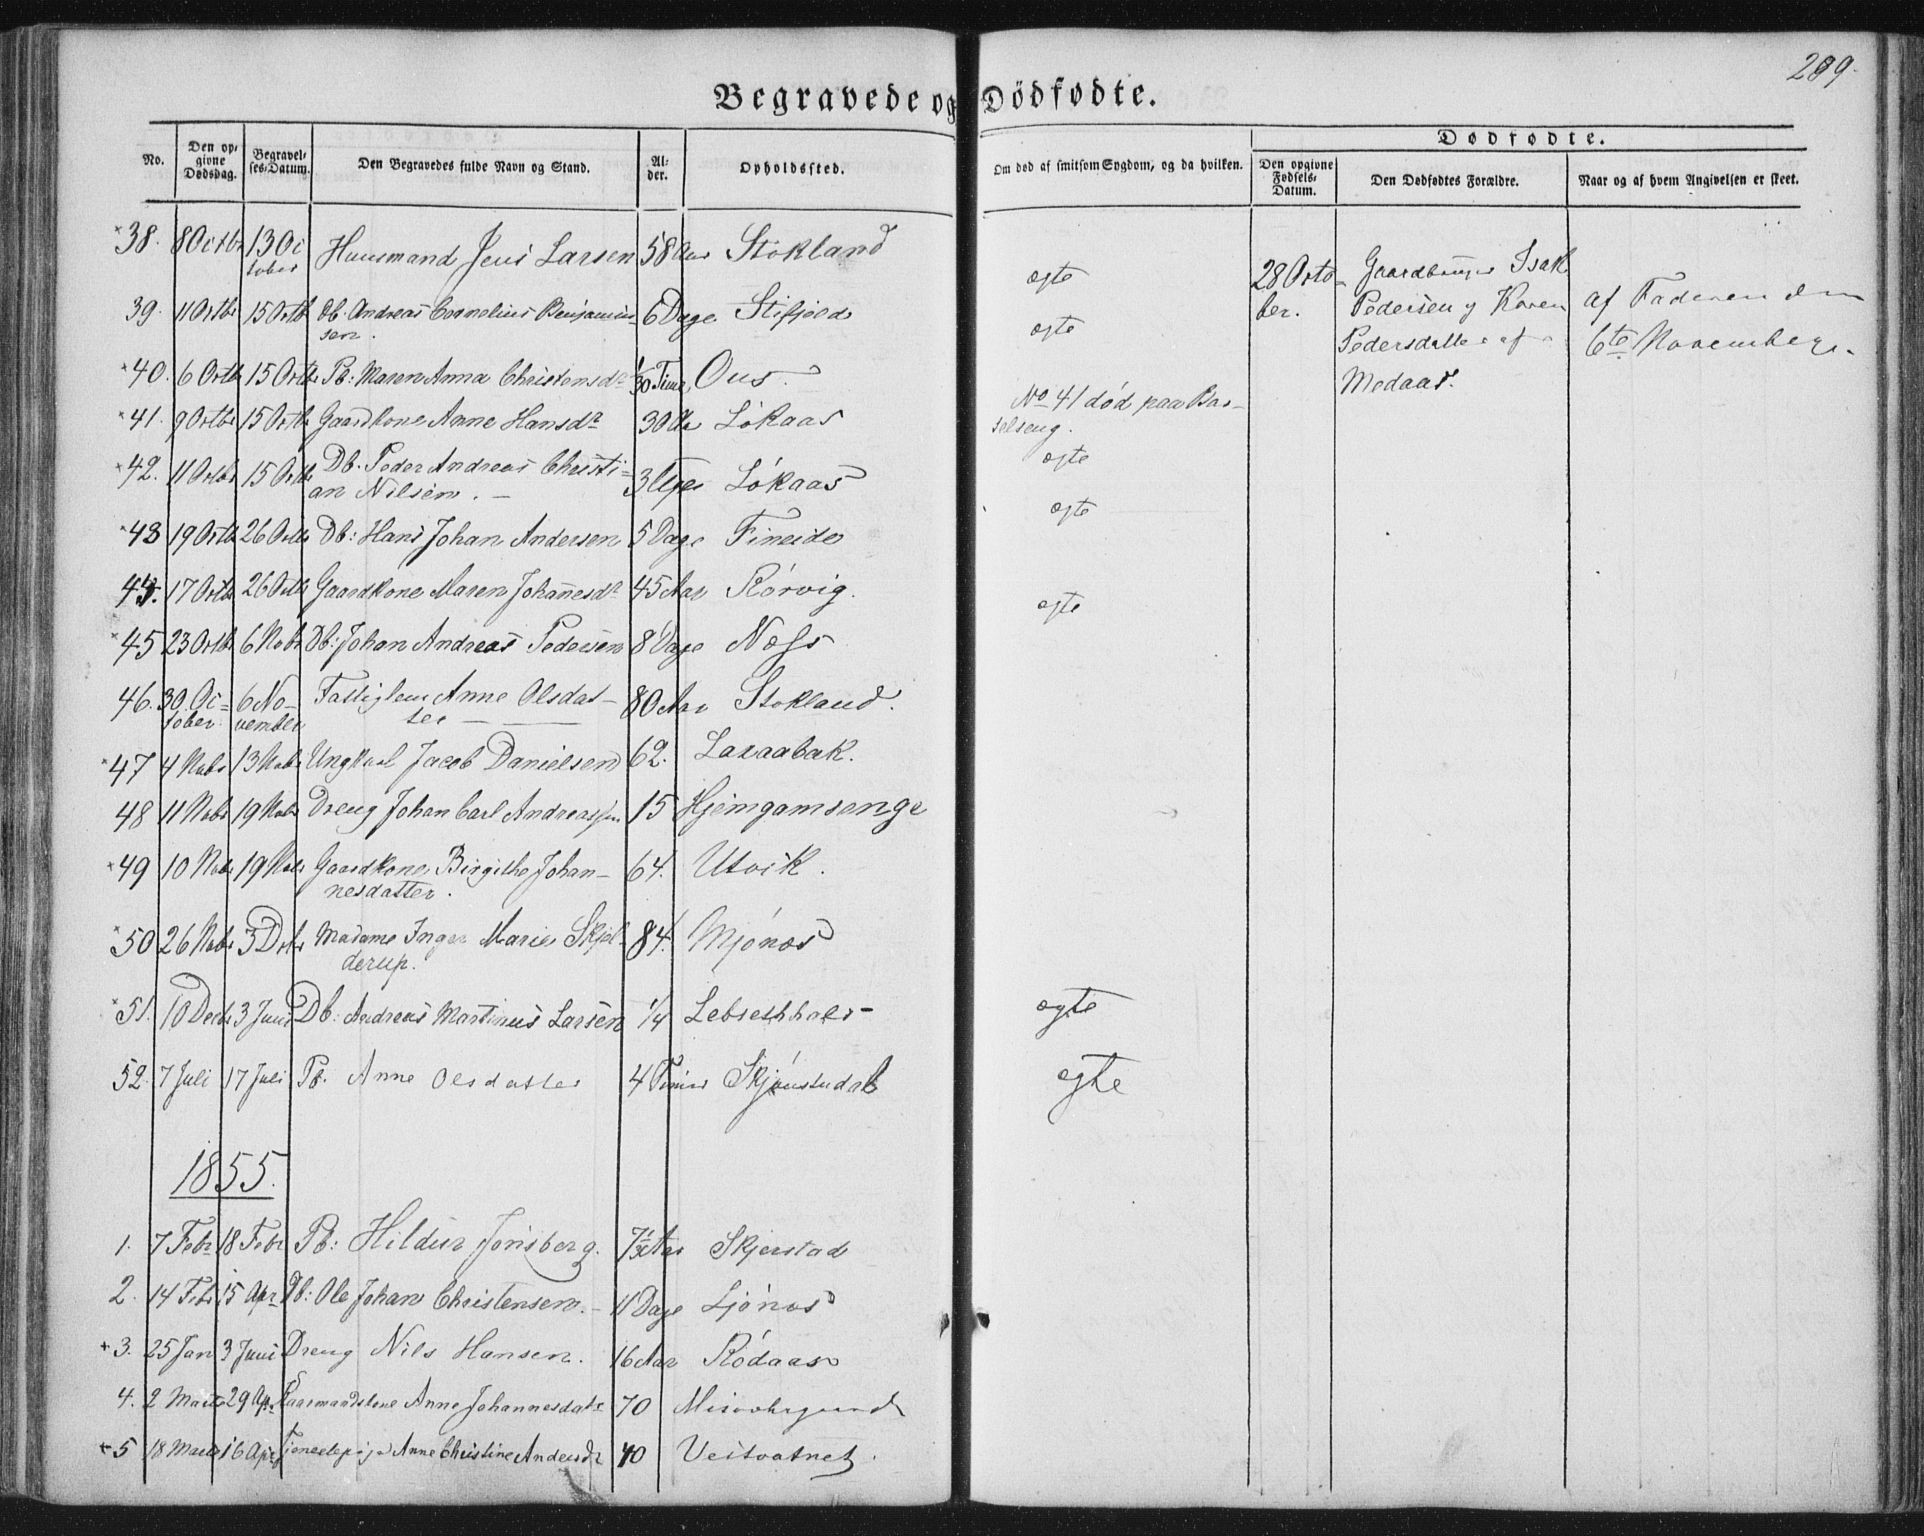 289.
Begravede og Dödfødte.
Dødfødte.
No.
Den opgivne Dødsdag.
Begravelses-Datum.
Den Begravedes fulde Navn og Stand.
Alder.
Opholdssted.
Om død af smitsom Sygdom, og da hvilken.
Den opgivne Fødsels-Datum.
Den Dødfødtes Forældre.
Naar og af hvem Angivelsen er skeet.
38. 8 Octbr 13 October Huusmand Jens Larsen 58 Aar Stokland
39. 11 Octbr 15 Octb Db. Andreas Cornelius Benjaminsen. 6 Dage Stifjeld ægte
40. 6 Octbr 15 Octbr Pb: Maren Anna Christensdr 1/30 Time Ous. ægte
41. 9 Octbr 15 Octbr Gaardkone Anne Hansdr 30 Aar Lökaas No 41 død paa Barselseng.
42. 11 Octbr 15 Octbr Db. Peder Andreas Christian Nilsen. 3 Uger Lökaas ægte
43 19 Octb 26 Octbr Db: Hans Johan Andersen 5 Dage Fineide ægte
44. 17 Octbr 26 Octbr Gaardkone Maren Johanesdr 45 Aar Rörvig.
45 23 Octbr 6 Nobr Db: Johan Andreas Pedersen 8 Dage Næss ægte
46. 30 October 6 November Fattiglem Anne Olsdatter 80 Aar Stokland.
47 4 Nobr 13 Nobr Ungkarl Jacob Danielsen 62. Laxaabak.
48 11 Nobr 19 Nobr Dreng Johan Carl Andreassen 15 Hjemgamsenge
49 10 Nobr 19 Nobr Gaardkone Birgithe Johannesdatter. 64. Utvik.
50 26 Nobr 3 Dcbr Madame Inger Marie Skjelderup. 84. Mjönæs
51. 10 Decbr 3 Juni Db: Andreas Martinus Larsen 1/4 ægte
52. 7 Juli 17 Juli Pb. Anne Olsdatter 4 Timer Skjønstudal ægte
28 October. Gaardbruger Isak
Pedersen og Karen
Pedersdatter af
Medaas.
af Faderen den
6te November.
1855.
1. 7 Febr 18 Febr Pb: Hildur Jonsberg. Skjerstad
2. 14 Febr 15 Apr Db: Ole Johan Christensen. 11 Dage Ljönæs
3. 25 Jan 3 Juni Dreng Nils Hansen. 16 Aar Rödaas
4. 2 Marts 29 Apr Kaarmandskone Anne Johannesdatr 70 Misværgrund
5 18 Marts 16 Apr Tjenestepige Anne Christine Andersdr 40 Vestvatnet.